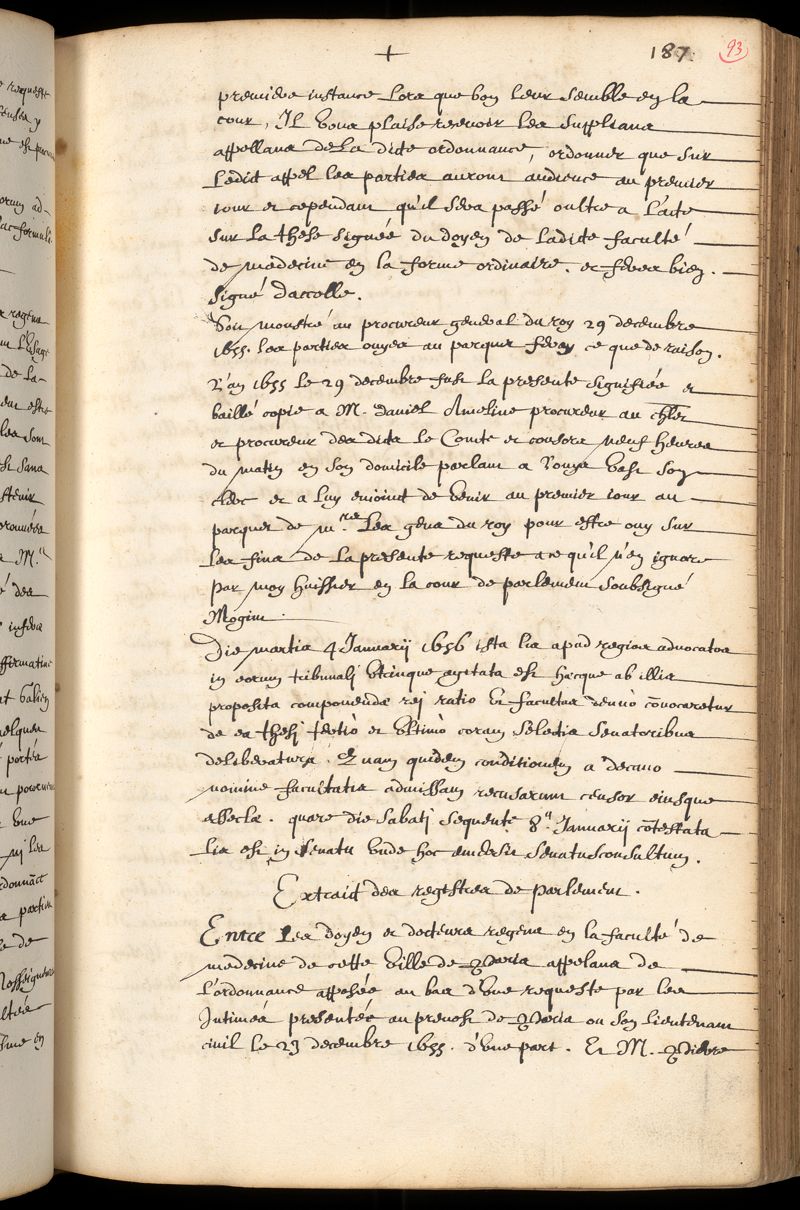 187. 93
premiere instance lors que bon leur semble en la
cour, Il vous plaise recevoir les supplians
appellans de la dicte ordonnance, ordonner que sur
ledict appel les parties auront audience au premier
iour et cependant qu'il sera passé oultre a l'acte
sur la these signée du doyen de ladicte faculté
de medecine en la forme ordinaire. et ferez bien.
signé daccolle.
Soit monstré au procureur general du roy 29 decembre
1655. les parties ouyes au parquet ferez ce que de raison.
L'an 1655 le 29 decembre fust la presente signifiée et
baillé copie a M. daniel Ameline procureur au chlet
et procureur des dicts le Comte et consors neuf heures
du matin en son domicile parlant a Louys vast son
clerc et a luy enioint de venir au premier iour au
parquet de mrs les gens du roy pour estre ouy sur
les fins de la presente requeste a ce qu'il n'en ignore
par moy huissier en la cour de parlement soubsigné
Mogin.
Die martis 4 Januarij 1656 ista lis apud regios advocatos
in eorum tribunali utrinque agitata est hecque ab illis
proposita componendæ rei ratio ut facultas denuò cõvocaretur
de ea thesi tertiò et ultimò coram selectis senatoribus
deliberatura. Quam quidem conditionem a decano
nomine facultatis admissam recusarunt censor eiusque
asseclæ. quare die sabati sequente 8.a Januarij cõtestata
lis est in senatu unde hoc emersit senatusconsultum.
Extraict des registres de parlement.
Entre les doyen et docteurs regens en la faculté de
medecine de cette ville de Paris appelans de
l'ordonnance apposée au bas d'une requeste par les
Intimés presentée au prevost de Paris ou son lieutenant
civil le 23 decembre 1655. d'une part. Et M. Pierre